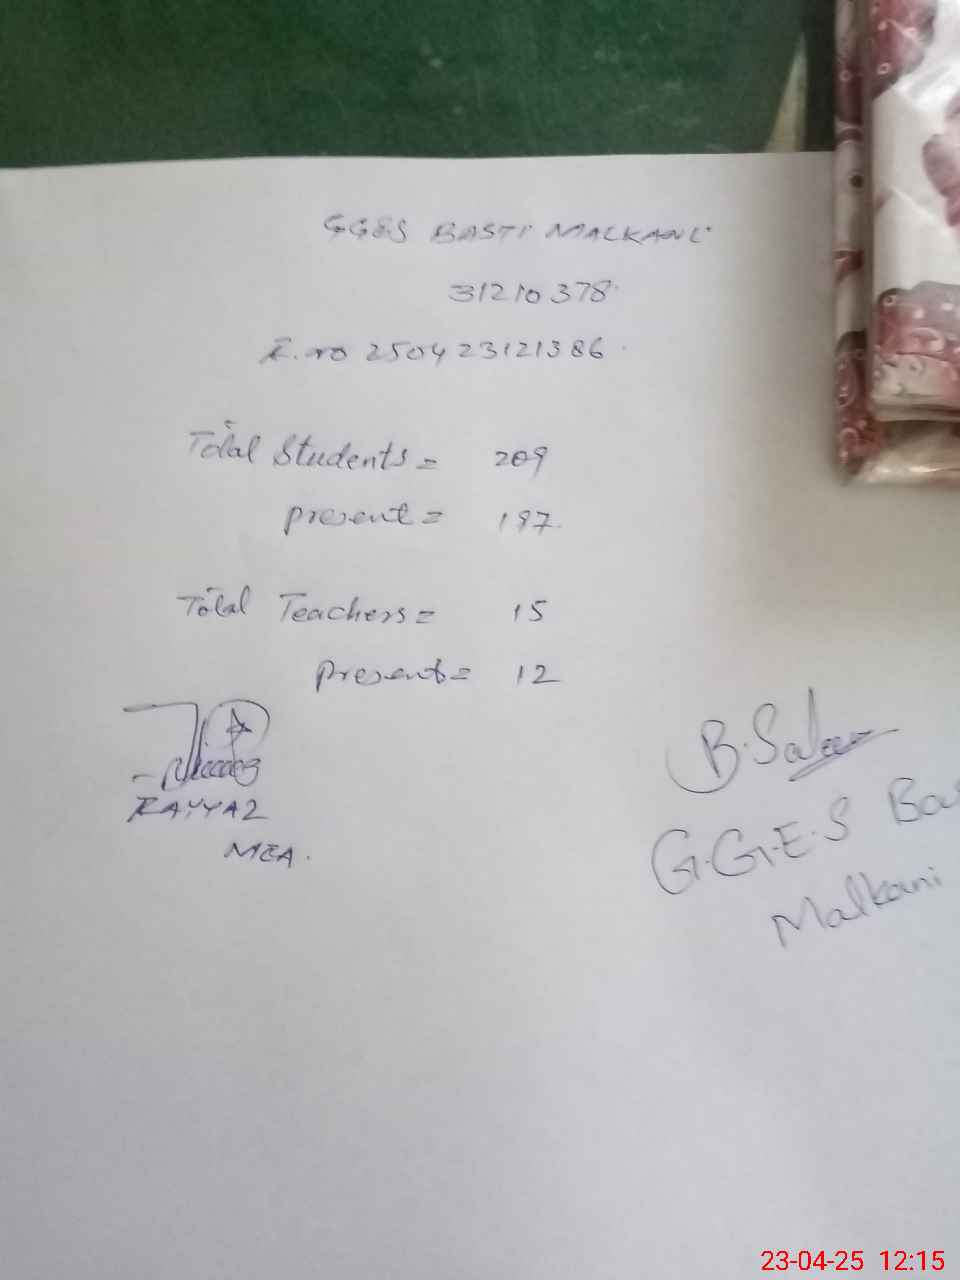 GGES BASTI MALKANI
31210378
R.no 250423121386
Total Students = 209
present = 197
Total Teachers = 15
present = 12
RAYYAZ
MEA.
B.Saleem
G.G.E.S Bas
Malkani
23-04-25 12:15